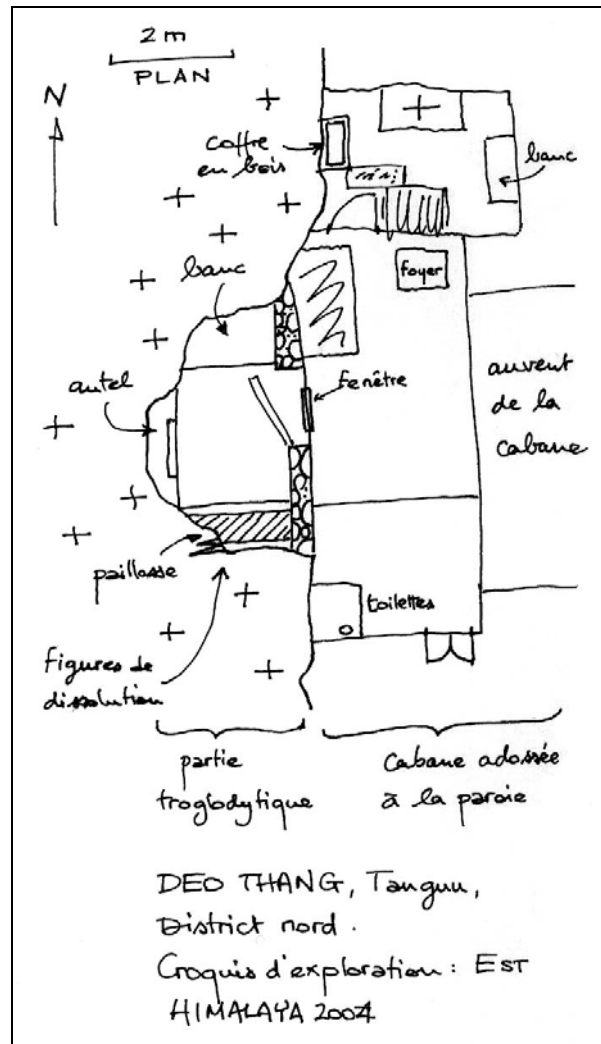 2 m
PLAN
N
coffre
en bois
banc
banc
foyer
autel
fenêtre
auvent
de la
cabane
paillasse
toilettes
figures de
dissolution
partie
troglodytique
Cabane adossée
à la paroie
DEO THANG, Tangun,
District nord.
Croquis d'exploration : EST
HIMALAYA 2004